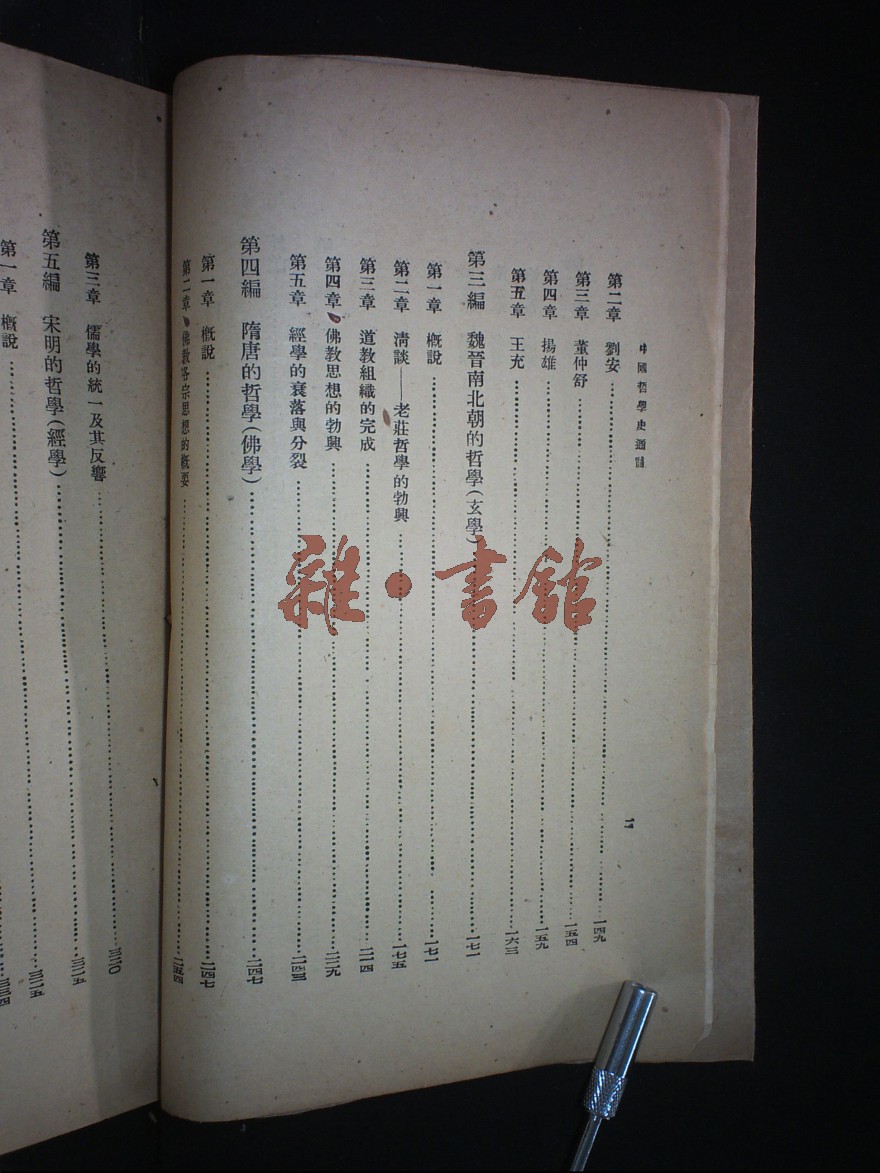 中國哲學史通論
二
第二章 劉安……一四九
第三章 董仲舒……一五四
第四章 揚雄……一五九
第五章 王充……一六三
第三編 魏晉南北朝的哲學(玄學)……一七一
第一章 概說……一七一
第二章 淸談——老莊哲學的勃興……一七五
第三章 道教組織的完成……二一四
第四章 佛教思想的勃興……二二九
第五章 經學的衰落與分裂……二四三
第四編 隋唐的哲學(佛學)……二四七
第一章 概說……二四七
第二章 佛教各宗思想的概要……二五四
第三章 儒學的統一及其反響……三二〇
第五編 宋明的哲學(經學)……三二五
第一章 概說……三二五
三三四
雜·書館